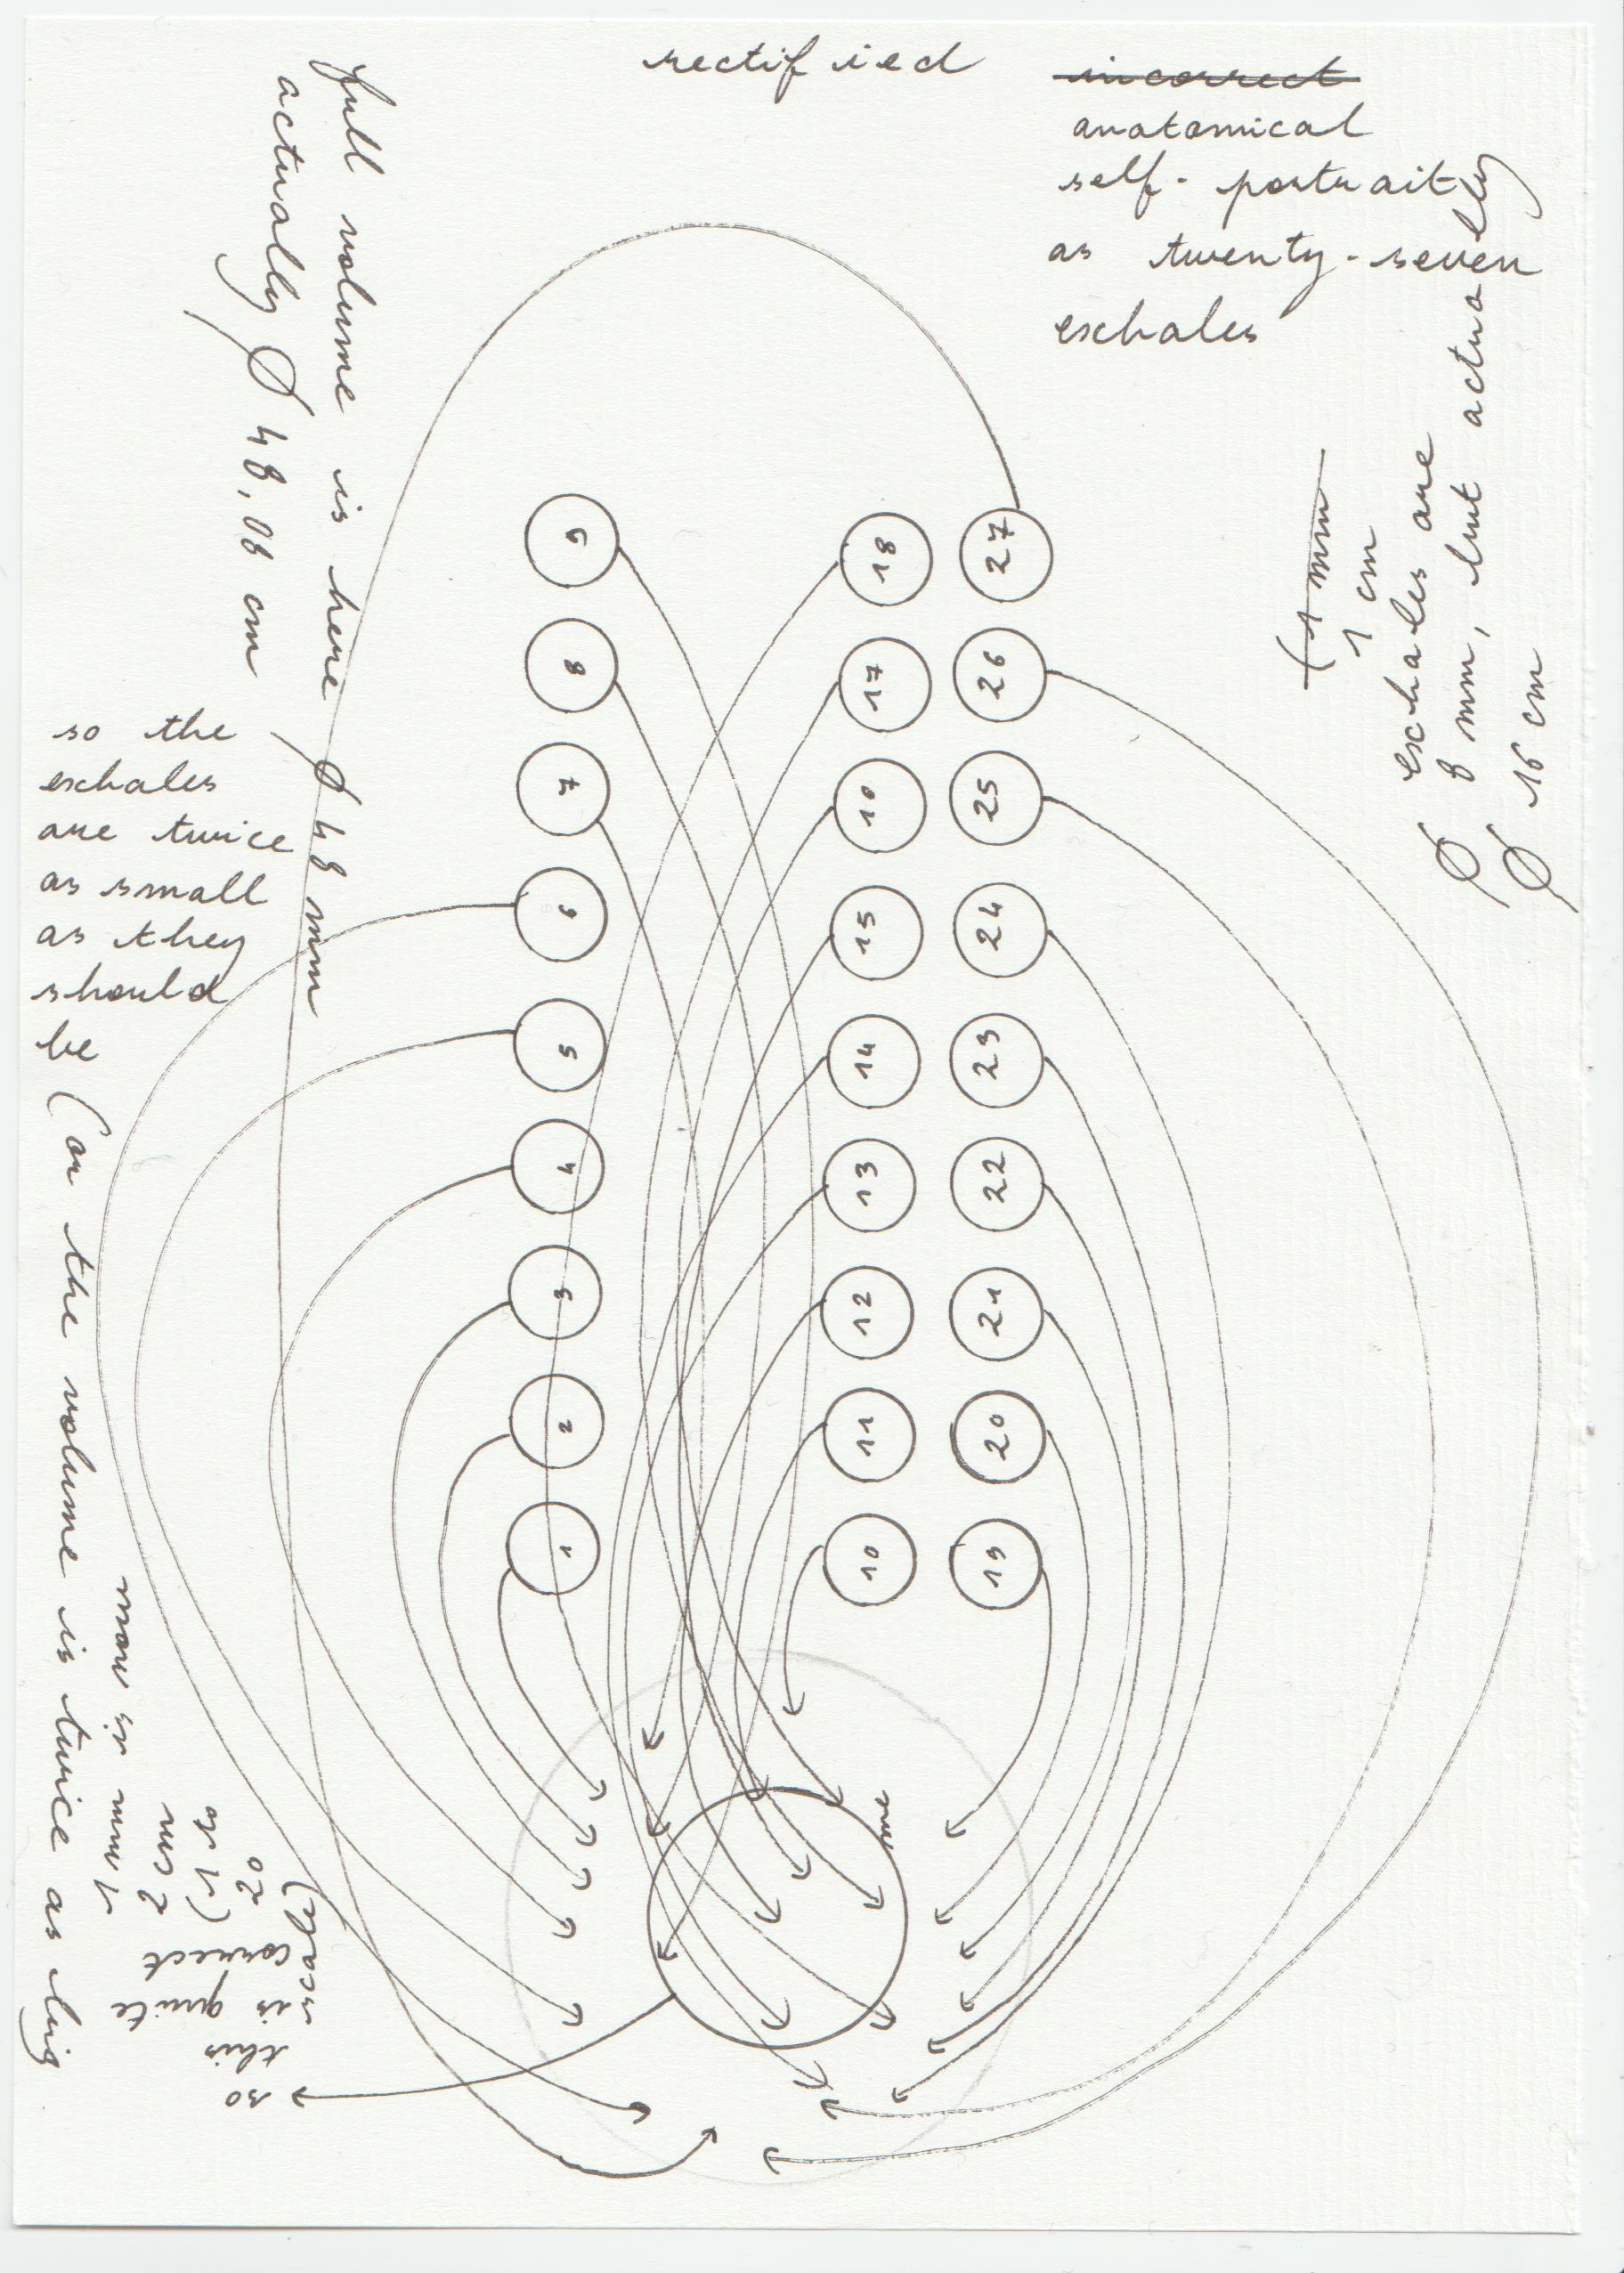 rectified
incorrect
anatomical
self-portrait
as twenty-seven
exhales
(1 mm
1 cm
exhales are
Ø 8 mm, but actually
Ø 16 cm
full volume is here Ø 48 mm
actually Ø 48,06 cm
so the
exhales
are twice
as small
as they
should
be
(or the volume is twice as big
9 18 27
8 17 26
7 16 25
6 15 24
5 14 23
4 13 22
3 12 21
2 11 20
1 10 19
me
so
this
is quite
correct
now is
1 mm
2 cm
(1 to
20
scale)